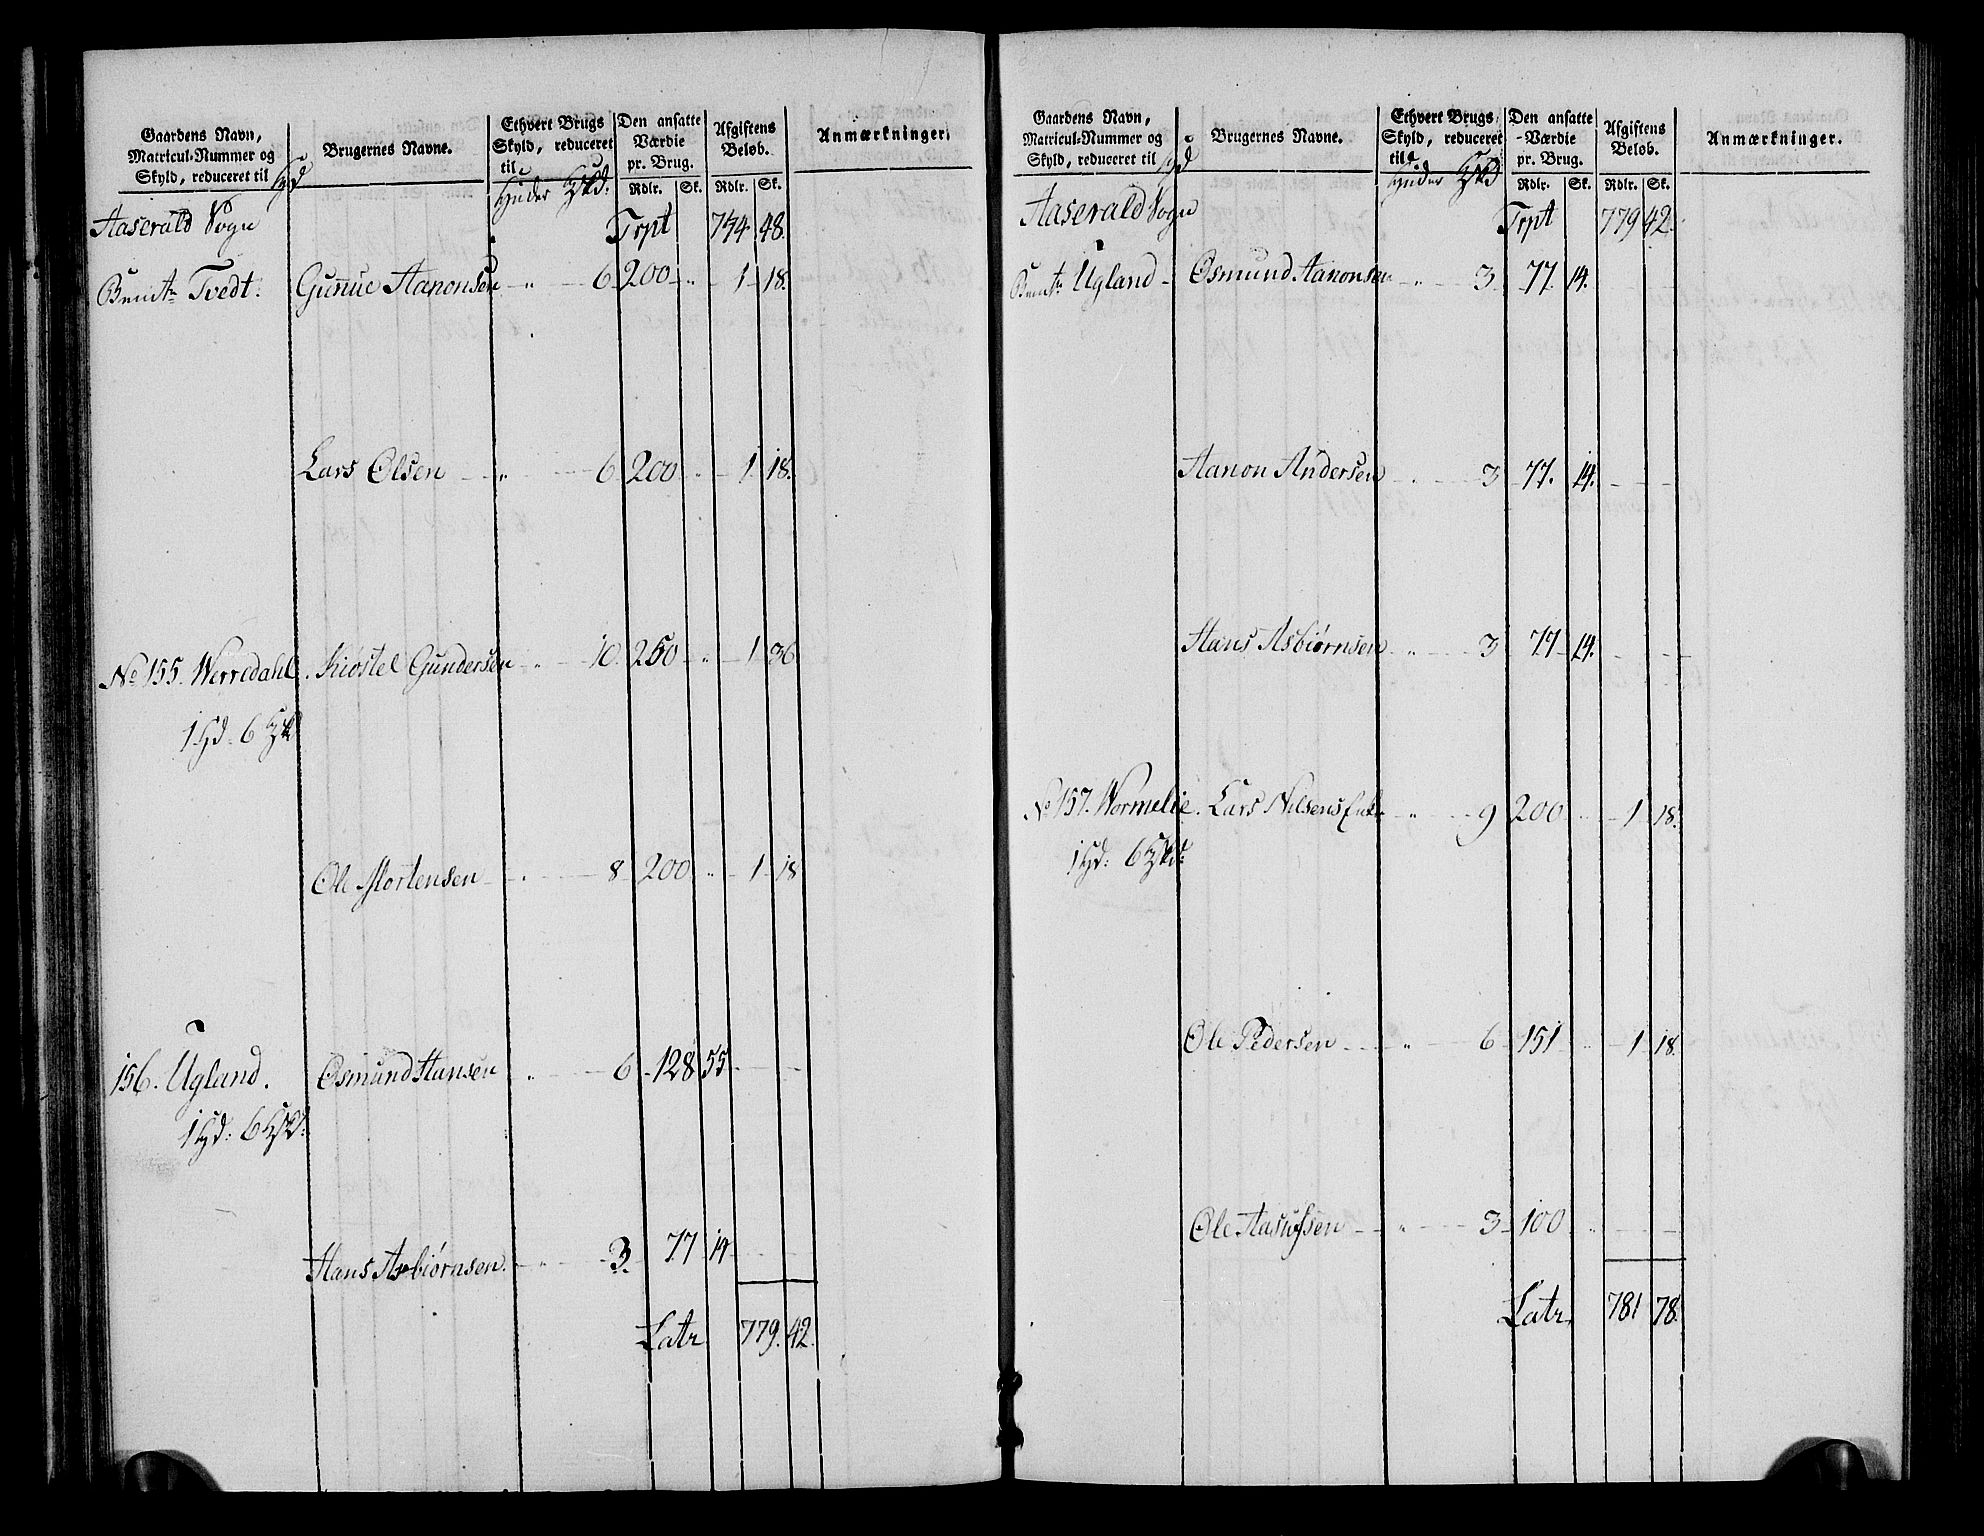 Gaardens Navn, Matricul-Nummer og Skyld, reduceret til Hd | Brugernes Navne. | Ethvert Brugs Skyld, reduceret til Huder Hskd: | Den ansatte Værdie pr. Brug. Rdlr. Sk. | Afgiftens Beløb. Rdlr. Sk. | Anmærkninger.
Aaserald Sogn Trpt 774 48.
Bemte Tvedt. Gunnue Aanonsen - " - 6 200 - " - 1 18.
Lars Olsen - " - 6 200 " - 1 18.
No 155. Werredahl. Kiøstel Gundersen " - 10 250 - " - 1 36
1 Hd. 6 Hskd
Ole Mortensen - " - 8 200 " - 1 18
156. Ugland. Osmund Hansen " - 6 128 55 - - -
1 Hd: 6 Hskd:
Hans Asbiørnsen. - " - 3. 77 14 - - -
Latr 779. 42.
Gaardens Navn, Matricul-Nummer og Skyld, reduceret til Hd | Brugernes Navne. | Ethvert Brugs Skyld, reduceret til Huder Hskd | Den ansatte Værdie pr. Brug. Rdlr. Sk. | Afgiftens Beløb. Rdlr. Sk. | Anmærkninger.
Aaserald Sogn Trpt 779 42.
Bemte Ugland - Osmund Aanonsen - " - 3 77. 14.
Aanon Andersen - 3 77. 14. - - -
Hans Asbiørnsen " - 3 77 14. - - -
No 157. Wormelie. Lars Nilsens Enke - " - 9 200 - 1 18.
1 Hd: 6 Hskd:
Ole Pedersen - " - 6 151 - 1 18.
Ole Aasulfsen - " - 3 100 " - - -
Latr. 781 78.